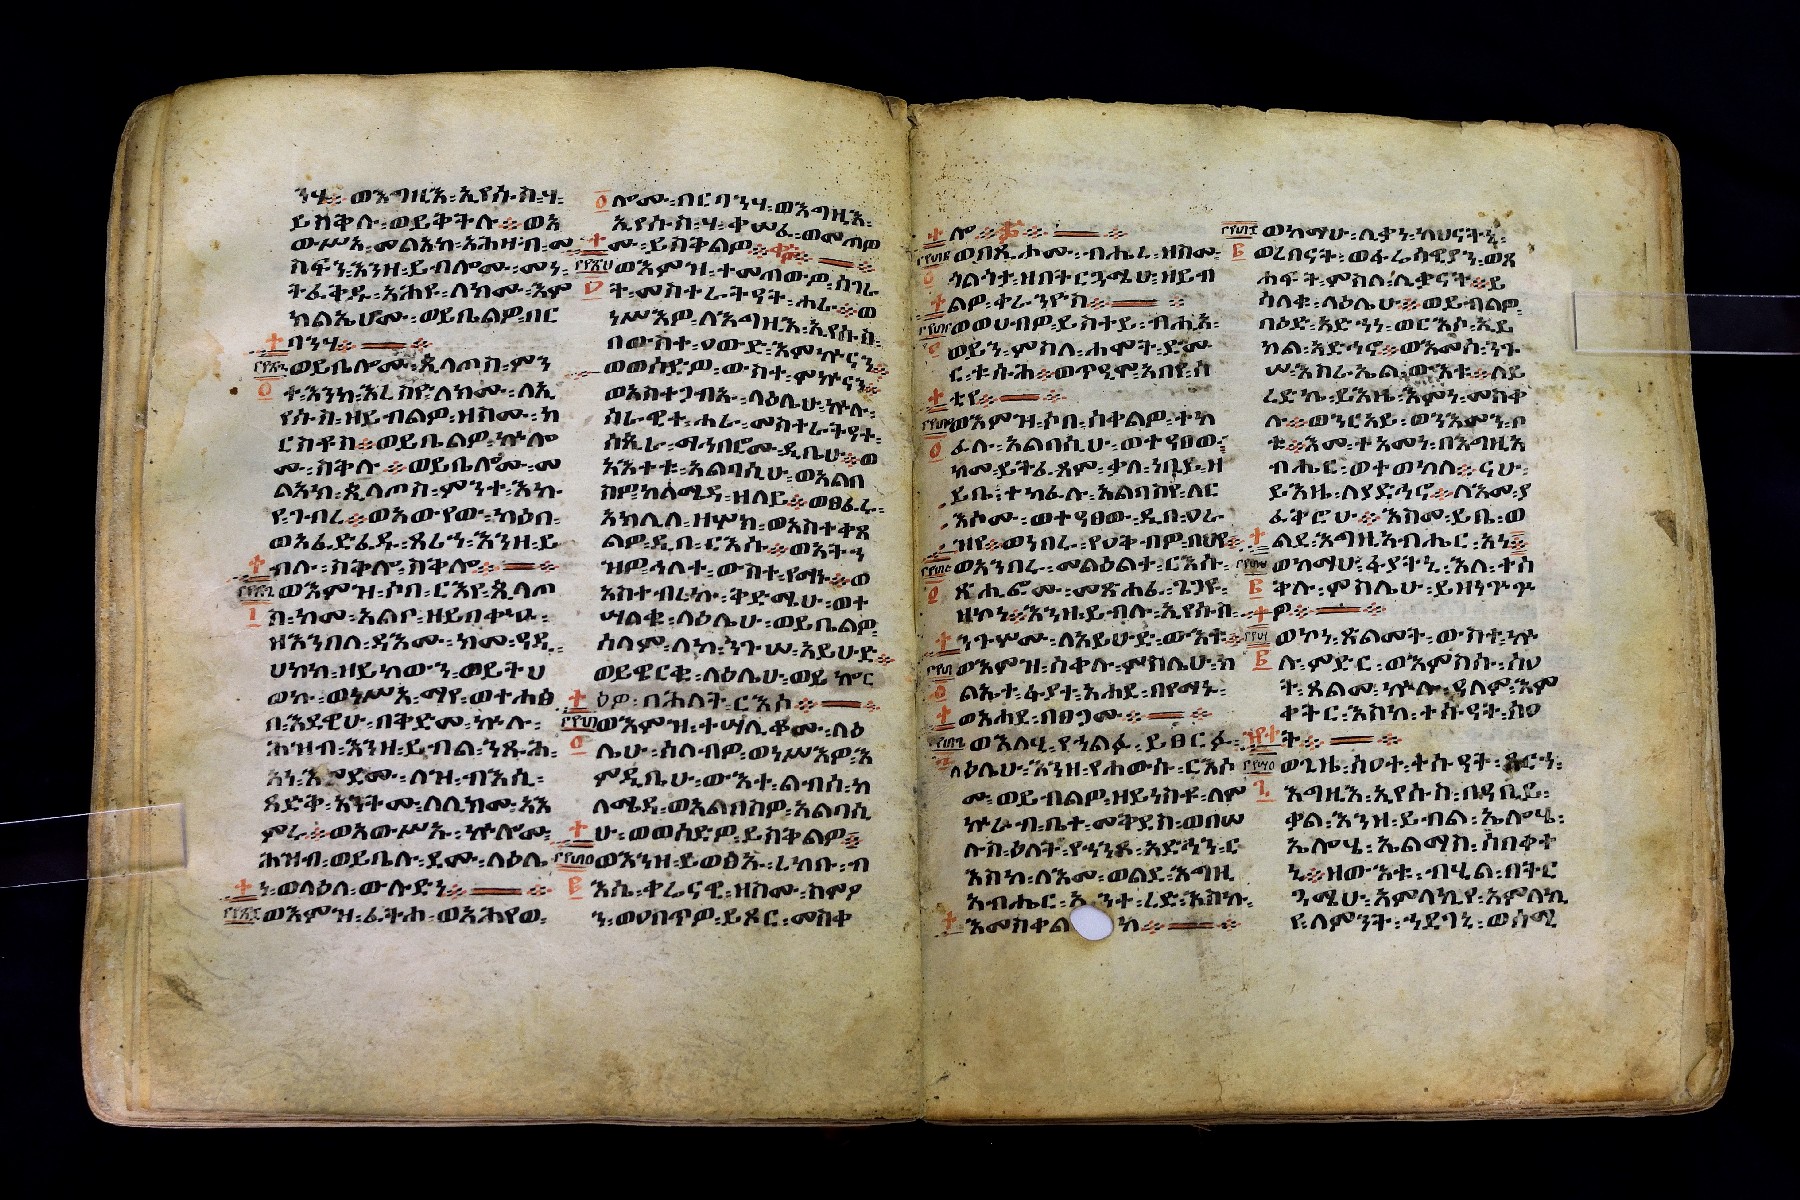 ንሃ። ወእግዚእ፡ኢየሱስ፡ሃ፡
ይስቅሉ፡ወይቅትሉ። ወአ
ውሥአ፡መልአከ፡አሕዛብ፡መ
ስፍን፡እንዘ፡ይብሎሙ፡መነ፡
ትፈቅዱ፡አሕዩ፡ለክሙ፡እም
ክልኤሆሙ፡ወይቤልዎ፡በር
ባንሃ።
ወይቤሎሙ፡ጲላጦስ፡ምን
ተ፡እንከ፡እረስዮ፡ለክሙ፡ለኢ
የሱስ፡ዘይብልዎ፡ዘስሙ፡ክ
ርስቶስ። ወይቤልዎ፡ኵሎ
ሙ፡ስቅሉ። ወይቤሎሙ፡መ
ልአከ፡ጲላጦስ፡ምንተ፡እኩ
የ፡ገብረ። ወአውየው፡ካዕበ፡
ወአፈድፈዱ፡ጸሪኀ፡እንዘ፡ይ
ብሉ፡ስቅሎ፡ስቅሎ።
ወእምዝ፡ሶበ፡ርእየ፡ጲላጦ
ስ፡ከመ፡አልቦ፡ዘይበቍዑ፡
ዘእንበለ፡ዳእሙ፡ከመ፡ዳዳ፡
ሀከከ፡ዘይከውን፡ወይትህ
ወኩ፡ወነሥአ፡ማየ፡ወተሐፅ
በ፡እደዊሁ፡በቅድመ፡ኵሉ፡
ሕዝብ፡እንዘ፡ይብል፡ንጹሕ፡
አነ፡እምደሙ፡ለዝ፡ብእሲ፡
ጻድቅ፡አንትሙ፡ለሊክሙ፡አእ
ምሩ። ወአውሥኡ፡ኵሎሙ፡
ሕዝብ፡ወይቤሉ፡ደሙ፡ላዕሌ
ነ፡ወላዕለ፡ውሉድነ።
ወእምዝ፡ፈትሐ፡ወአሕየወ፡
ሎሙ፡በርባንሃ፡ወእግዚእ፡
ኢየሱስ፡ሃ፡ቀሠፈ፡ወመጠወ
ሙ፡ይስቅልዎ።
ወእምዝ፡ተመጠውዎ፡ስገራ
ት፡መስተራትዓት፡ሐራ። ወ
ነሥእዎ፡ለእግዚእ፡ኢየሱስ፡
በውስተ፡ዐውድ፡እምኵርን።
ወወሰድዎ፡ውስተ፡ምኵናን።
ወአስተጋብኡ፡ላዕሌሁ፡ኵሉ፡
ሰራዊተ፡ሐራ፡መስተራትዓት፡
ሰጲራ፡ማኅበሮሙ፡ዲቤሁ። ወ
አእተቱ፡አልባሲሁ፡ወአልበ
ስዎ፡ከለሜዳ፡ዘለይ። ወፀፈሩ፡
አክሊለ፡ዘሦክ፡ወአስተቀጸ
ልዎ፡ዲበ፡ርእሱ። ወአትን
ዝዎ፡ኅለተ፡ውስተ፡የማኑ። ወ
አስተብረኩ፡ቅድሜሁ፡ወተ
ሣለቁ፡ላዕሌሁ፡ወይቤልዎ፡
ሰላም፡ለከ፡ንጉሠ፡አይሁድ።
ወይዌርቁ፡ላዕሌሁ፡ወይኰር
ዕዎ፡በሕለት፡ርእሶ።
ወእምዝ፡ተሣሊቆሙ፡ላዕ
ሌሁ፡ሰለብዎ፡ወነሥእዎ፡እ
ምዲቤሁ፡ውእተ፡ልብሰ፡ከ
ለሜዳ፡ወአልበስዎ፡አልባሲ
ሁ፡ወወሰድዎ፡ይስቅልዎ።
ወእንዘ፡ይወፅኡ፡ረከቡ፡ብ
እሴ፡ቀሬናዌ፡ዘስሙ፡ስምዖ
ን፡ወዐበጥዎ፡ይጾር፡መስቀ
ሎ።
ወበጺሖሙ፡ብሔረ፡ዘስሙ፡
ጎልጎታ፡ዘበትርጓሜሁ፡ዘይብ
ልዎ፡ቀራንዮስ።
ወወሀብዎ፡ይስተይ፡ብሒአ፡
ወይን፡ምስለ፡ሐሞት፡ድሙ
ር፡ቱሱሕ። ወጥዒሞ፡አበየ፡ሰ
ቲየ።
ወእምዝ፡ሶበ፡ሰቀልዎ፡ተካ
ፈሉ፡አልባሲሁ፡ወተዓፀወ፡
ከመ፡ይትፈጸም፡ቃለ፡ነቢይ፡ዘ
ይቤ፡ተካፈሉ፡አልባስየ፡ለር
እሶሙ፡ወተዓፀው፡ዲበ፡ዐራ
ዝየ። ወነበሩ፡የዐቅብዎ፡በህየ።
ወአንበሩ፡መልዕልተ፡ርእሱ፡
ጽሒፎሙ፡መጽሐፈ፡ጌጋዩ፡
ዘኮነ። እንዘ፡ይብሉ፡ኢየሱስ፡
ንጉሦሙ፡ለአይሁድ፡ውእቱ።
ወእምዝ፡ሰቀሉ፡ምስሌሁ፡ክ
ልኤተ፡ፈያተ፡አሐደ፡በየማኑ፡
ወአሐደ፡በፀጋሙ።
ወእለሂ፡የኀልፉ፡ይፀርፉ፡
ላዕሌሁ፡እንዘ፡የሐውሱ፡ርእሶ
ሙ፡ወይብልዎ፡ዘይነስቶ፡ለም
ኵራብ፡ቤተ፡መቅደስ፡ወበሠ
ሉስ፡ዕለት፡የሐንጾ፡አድኅን፡ር
እስከ፡ለእመ፡ወልደ፡እግዚ
አብሔር፡አንተ፡ረድ፡እስኩ፡
እመስቀልከ።
ወከማሁ፡ሊቃነ፡ካህናትኒ፡
ወረበናት፡ወፈሪሳዊያን፡ወጸ
ሐፍት፡ምስለ፡ሊቃናት፡ይ
ሳለቁ፡ላዕሌሁ። ወይብልዎ፡
ባዕድ፡አድኀነ፡ወርእሶ፡ኢይ
ክል፡አድኅኖ። ወእመሰ፡ንጉ
ሠ፡እስራኤል፡ውእቱ። ለይ
ረድ፡ኬ፡ይእዜ፡እምነ፡መስቀ
ሉ። ወንርአይ፡ወንእምን፡ቦ
ቱ። እመ፡ተአመነ፡በእግዚአ
ብሔር፡ወተወከለ። ናሁ፡
ይእዜ፡ለያድኅኖ። ለእመ፡ያ
ፈቅሮሁ። እስመ፡ይቤ፡ወ
ልደ፡እግዚአብሔር፡አነ።
ወከማሁ፡ፈያትኒ፡እለ፡ተሰ
ቅሉ፡ምስሌሁ፡ይዘነጕጕ
ዎ።
ወኮነ፡ጽልመት፡ውስተ፡ኵ
ሉ፡ምድር፡ወእምስሱ፡ሰዐ
ት፡ጸልመ፡ኵሉ፡ዓለም፡እም
ቀትር፡እስከ፡ተሱዓት፡ሰዐ
ት።
ወጊዜ፡ሰዐተ፡ተሱዓት፡ጸርኀ፡
እግዚእ፡ኢየሱስ፡በዓቢይ፡
ቃል፡እንዘ፡ይብል፡ኤሎሄ፡
ኤሎሄ፡ኤልማስ፡ሰበቅተ
ኒ። ዘውእቱ፡ብሂል፡በትር
ጓሜሁ፡አምላኪየ፡አምላኪ
የ፡ለምንት፡ኀደገኒ፡ወሰሚ